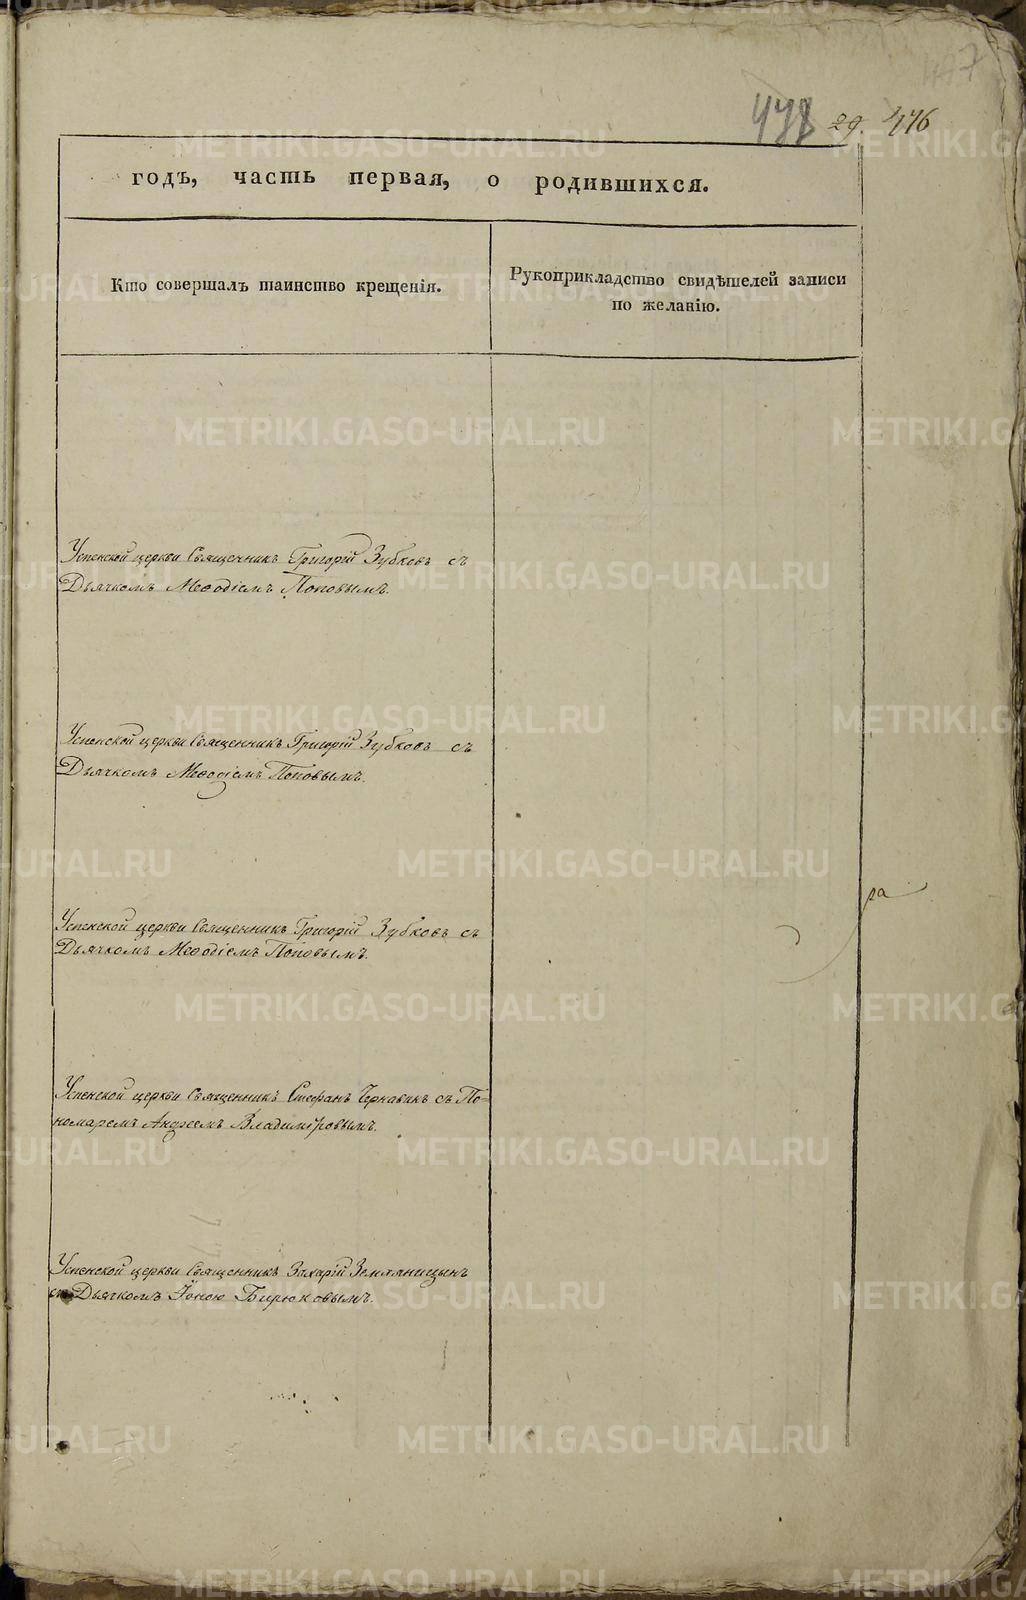 477
438 29. 446
годъ, часть первая, о родившихся.
Кто совершалъ таинство крещенія.
Рукоприкладство свидѣтелей записи
по желанію.
Успенской церкви Священникъ Григорій Зубковъ съ
Дьячкомъ Меѳодіемъ Поповымъ.
Успенской церкви Священникъ Григорій Зубковъ съ
Дьячкомъ Меѳодіемъ Поповымъ.
ра
Успенской церкви Священникъ Григорій Зубковъ съ
Дьячкомъ Меѳодіемъ Поповымъ.
Успенской церкви Священникъ Стефанъ Чернавинъ съ По-
номаремъ Андреемъ Владиміровымъ.
Успенской церкви Священникъ Захарій Земляницынъ
съ Дьячкомъ Іоною Бирюковымъ.
METRIKI.GASO-URAL.RU